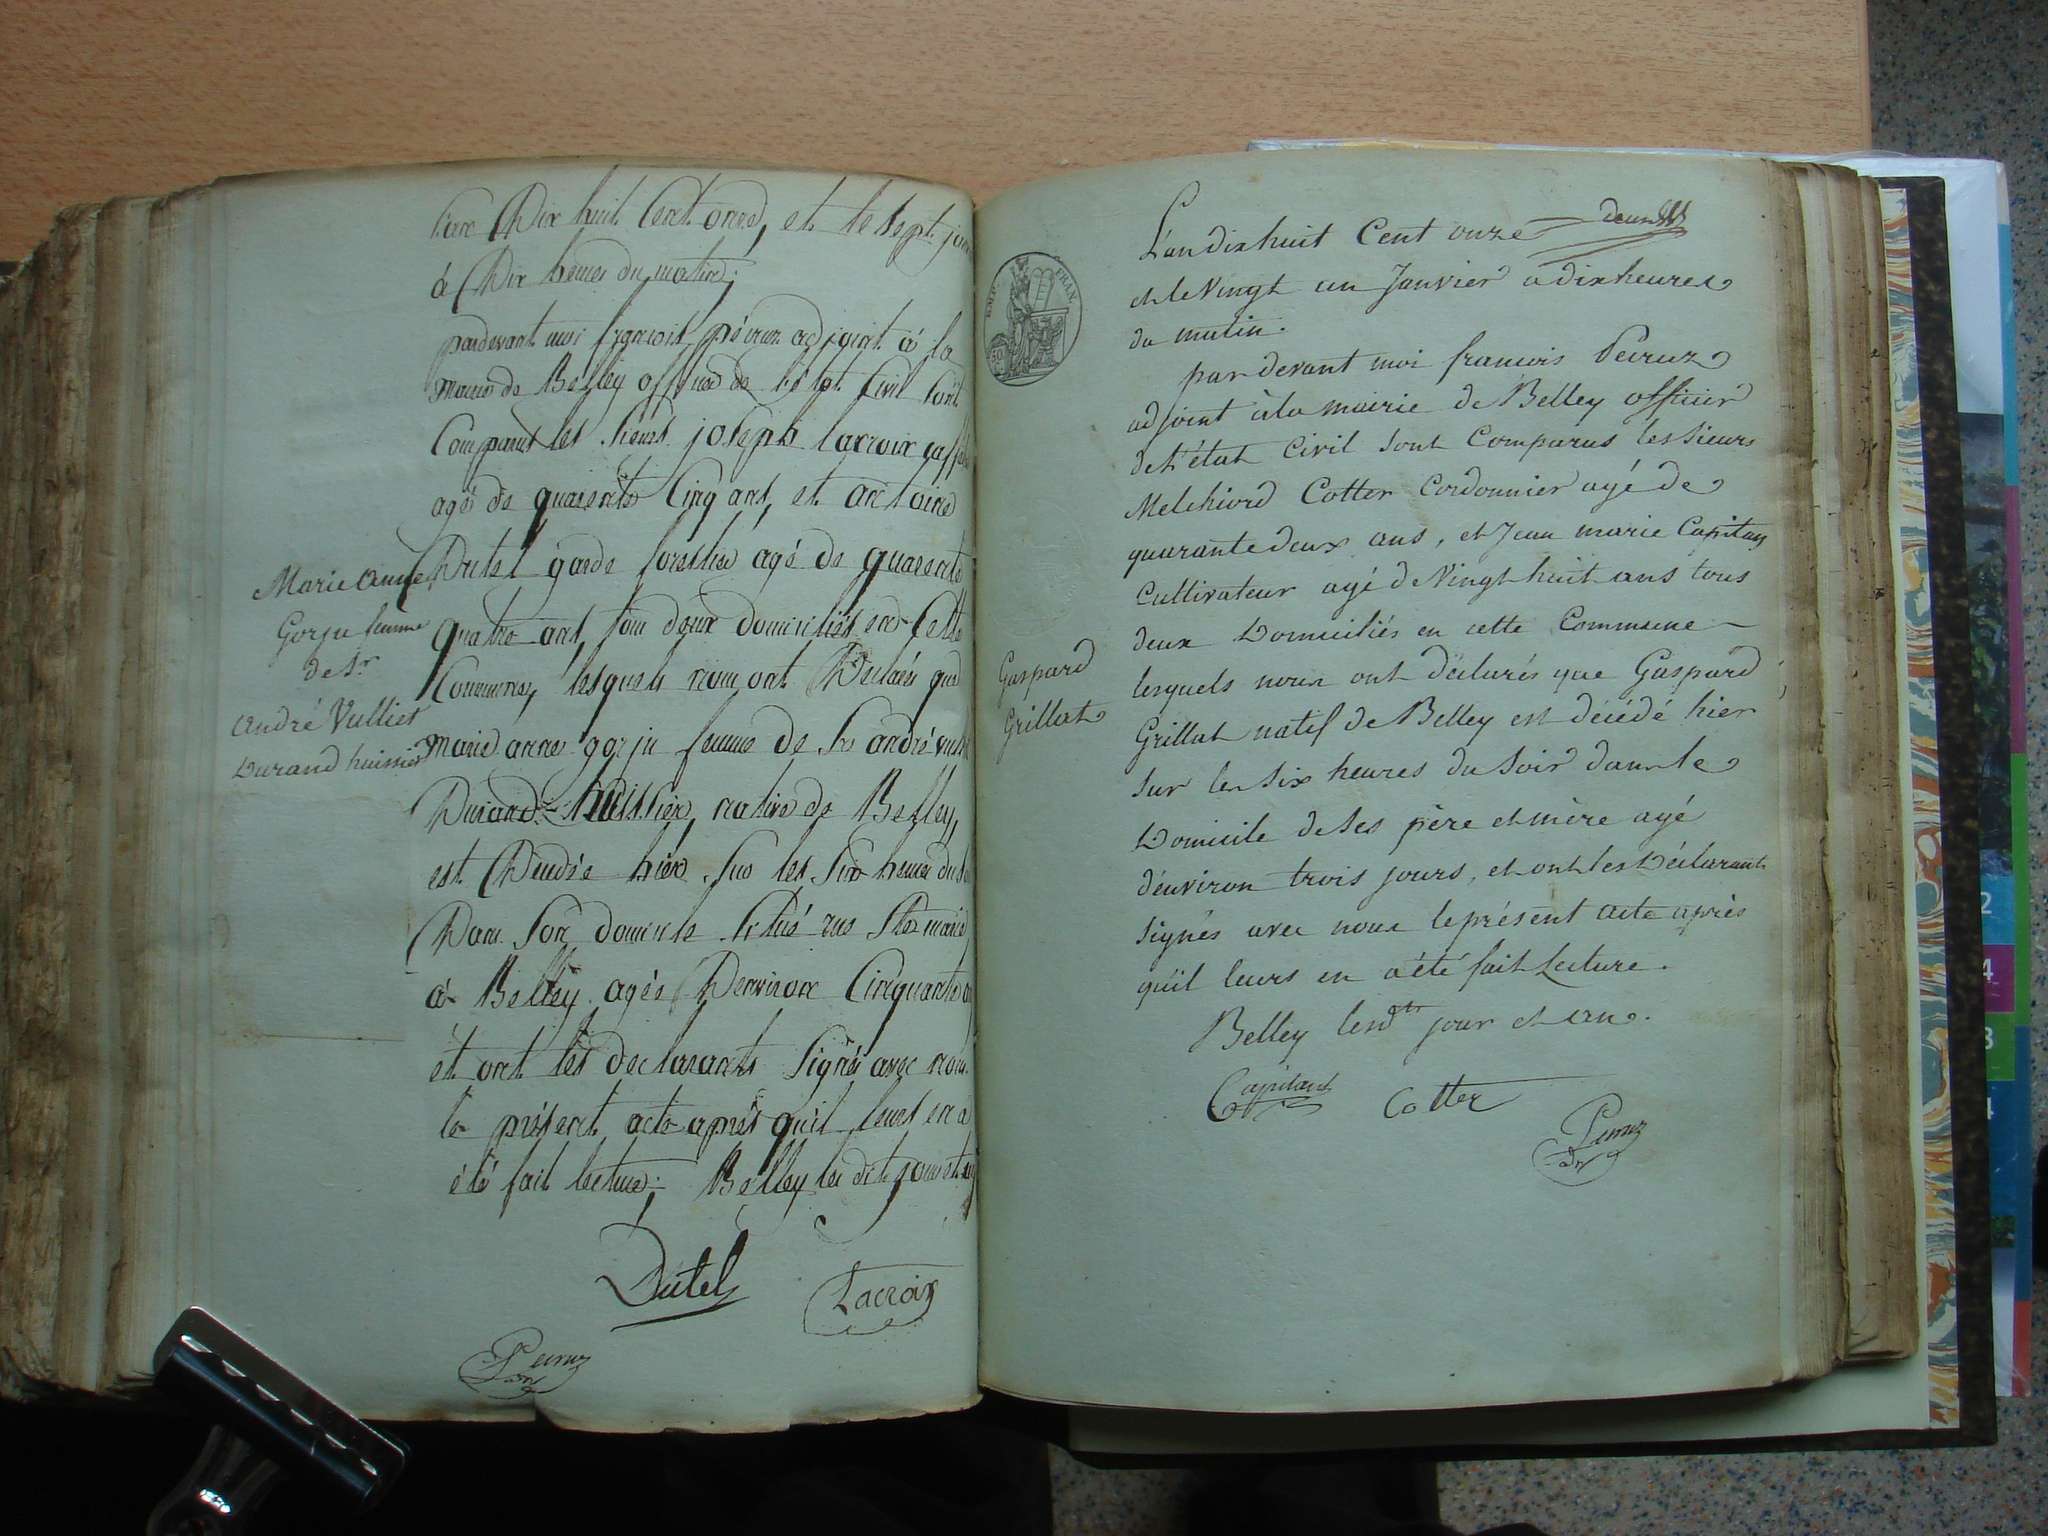 L'an Dix huit Cent onze, et le sept jan
à Dix heures du matin;
pardevant moi françois péiruz adjoint à la
mairie de Belley officier de l'état Civil sont
Comparus les sieurs joseph lacroix
agé de quarente Cinq ans, et antoine
Dutel garde forestier agé de quarente
quatre ans, tous deux domiciliés en Cette
Commune, lesquels nous ont Déclarés que
marie anne gorju femme de Sr andré vulliet
Durand huissier, native de Belley,
est Décédée hier sur les Six heures du
Dans son domicile situé rue Ste marie
à Belley agée D'environ Cinquante
et ont les declarants signés avec nous
le présent acte après qu'il leurs en a
été fait lecture; Belley les dit jour et an
Marie Anne
Gorju femme
de Sr
André Vulliet
Durand huissier
Dutel
Lacroix
Peiruz
adt
deux
L'an dix huit Cent onze
et le Vingt un Janvier a dix heures
du matin.
EMP. FRAN.
50
par devant moi francois Peiruz
adjoint à la mairie de Belley officier
de l'état Civil sont Comparus les sieurs
Melchiord Cotter Cordonnier agé de
quarante deux ans, et Jean marie Capitan
Cultivateur agé de Vingt huit ans tous
deux Domiciliés en cette Commune
lesquels nous ont déclarés que Gaspard
Grillat natif de Belley est décédé hier
sur les six heures du soir dans le
Domicile de ses père et mère agé
d'environ trois jours, et ont les Déclarants
signés avec nous le présent acte après
qu'il leurs en a été fait Lecture.
Belley lesd.ts jour et an.
Gaspard
Grillat
Capitant
Cotter
Peiruz
adt
2
4
3
4